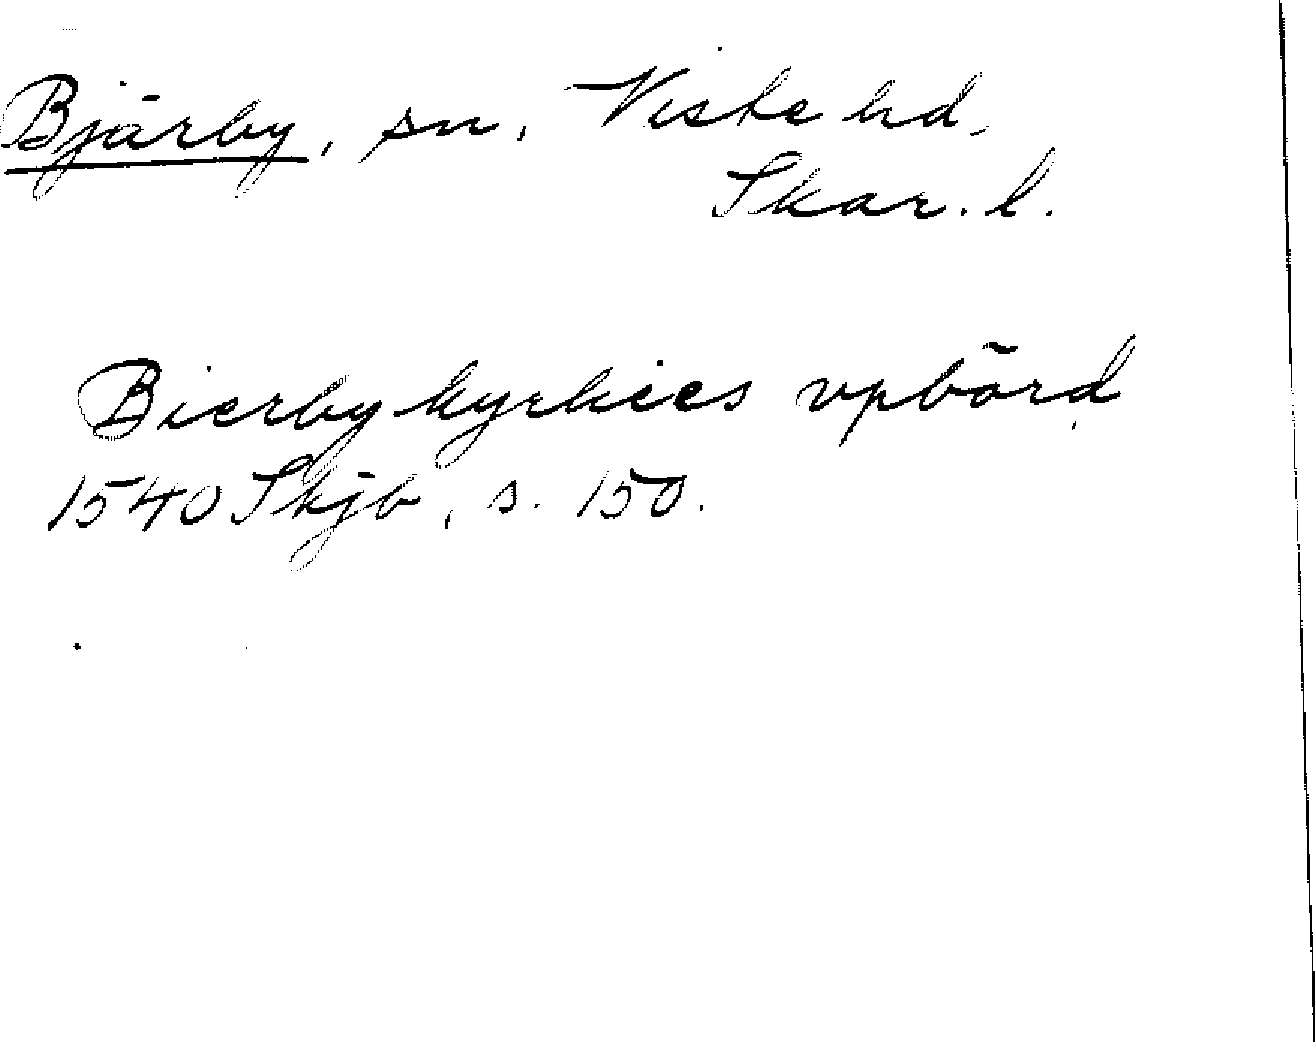 Bjärby, sn, Viste hd.
Skar. l.
Bierby kyrkies vpbörd
1540 Skjb, s. 150.